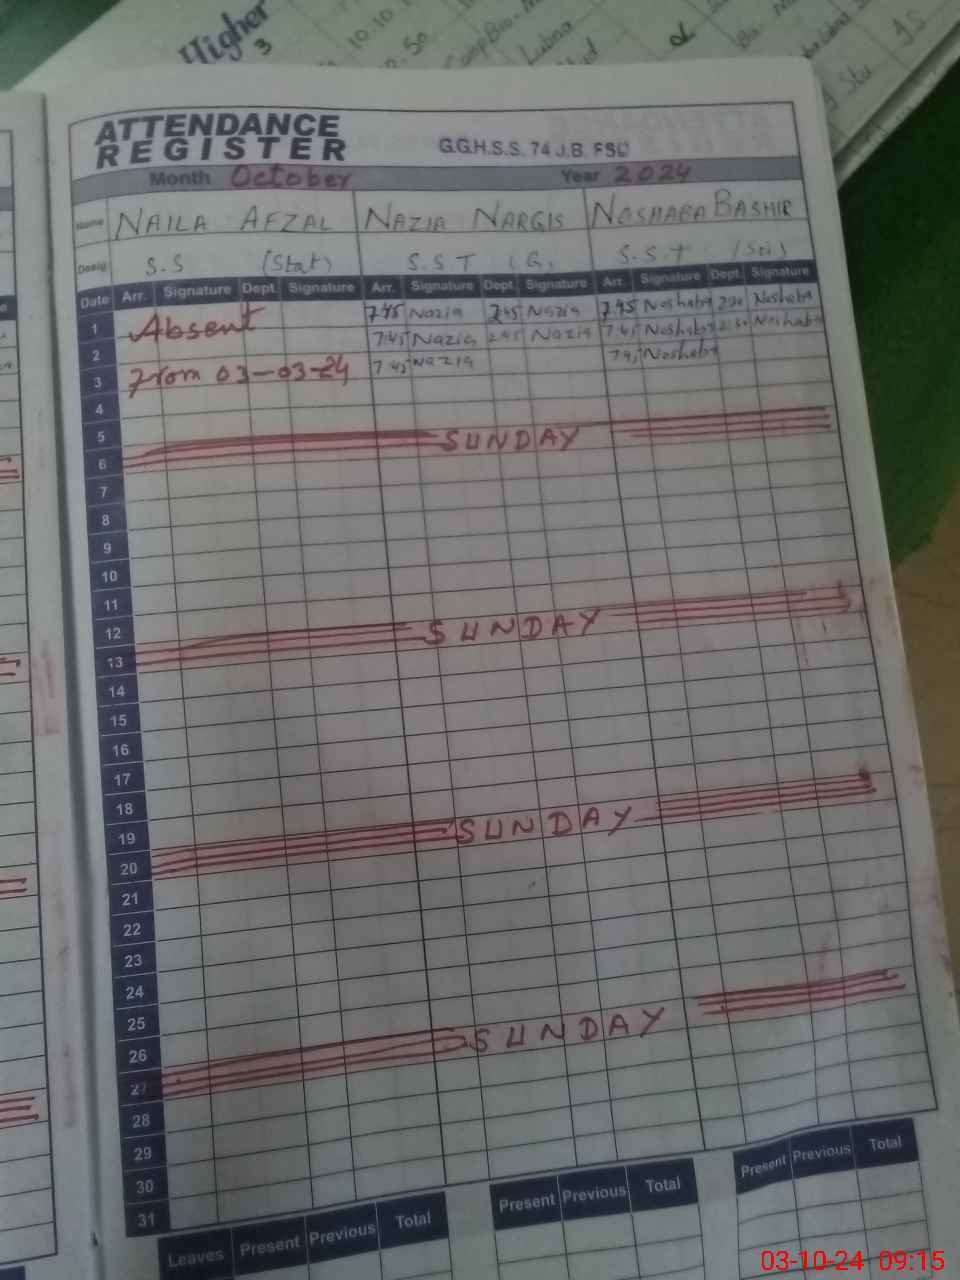 Higher
3
10.10
.50
Lubna
ATTENDANCE
REGISTER
G.G.H.S.S. 74 J.B. FSD
Month October Year 2024
Name NAILA AFZAL NAZIA NARGIS NOSHABA BASHIR
Desig S.S (Stat) S.S.T (G) S.S.T (Sci)
Date Arr. Signature Dept. Signature Arr. Signature Dept. Signature Arr. Signature Dept. Signature
1 Absent 7.45 Nazia 2.45 Nazia 7.45 Noshaba 2.30 Noshaba
2 7.45 Nazia 2.45 Nazia 7.45 Noshaba 2.30 Noshaba
3 From 03-03-24 7.45 Nazia 7.45 Noshaba
4
5
6 SUNDAY
7
8
9
10
11
12
13 SUNDAY
14
15
16
17
18
19
20 SUNDAY
21
22
23
24
25
26
27 SUNDAY
28
29
30
31
Leaves Present Previous Total Present Previous Total Present Previous Total
03-10-24 09:15